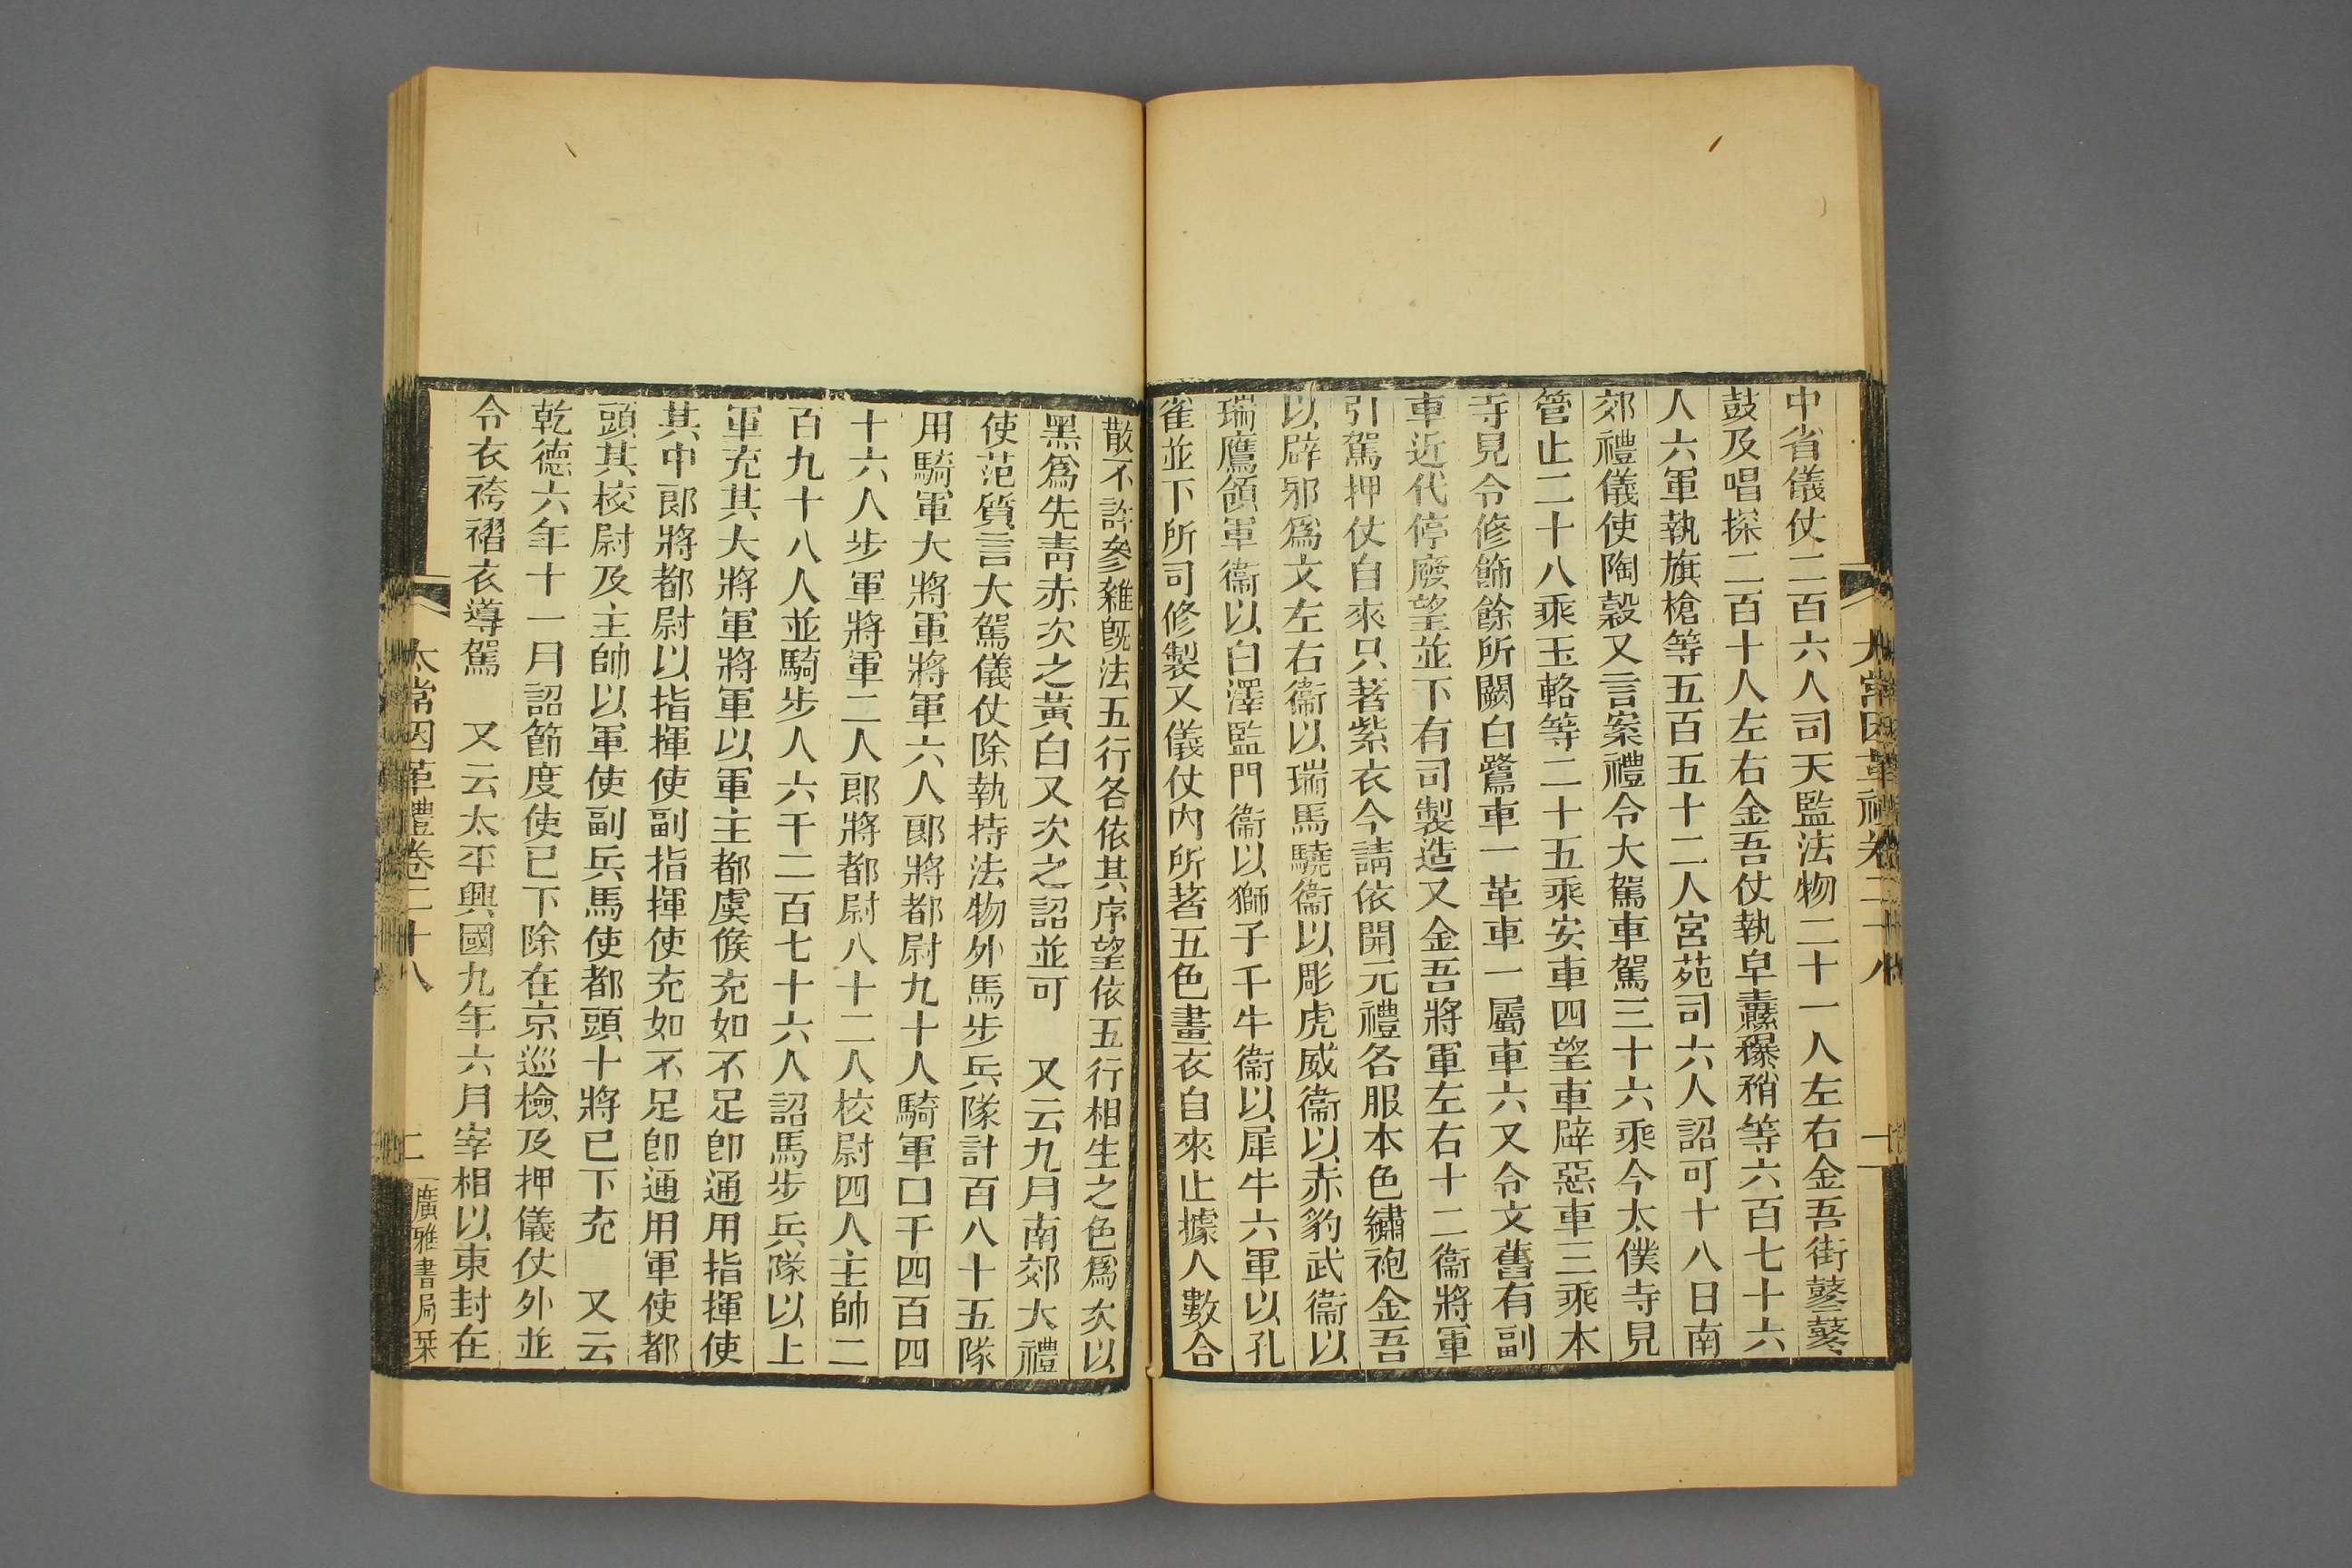 太常因革禮卷二十八
一
中省儀仗二百六人司天監法物二十一人左右金吾街鼕鼕
鼓及唱探二百十人左右金吾仗執皁纛犦矟等六百七十六
人六軍執旗槍等五百五十二人宮苑司六人詔可十八日南
郊禮儀使陶穀又言案禮令大駕車駕三十六乘今太僕寺見
管止二十八乘玉輅等二十五乘安車四望車辟惡車三乘本
寺見令修飾餘所闕白鷺車一革車一屬車六又令文舊有副
車近代停廢望並下有司製造又金吾將軍左右十二衞將軍
引駕押仗自來只著紫衣今請依開元禮各服本色繡袍金吾
以辟邪爲文左右衞以瑞馬驍衞以彫虎威衞以赤豹武衞以
瑞鷹領軍衞以白澤監門衞以獅子千牛衞以犀牛六軍以孔
雀並下所司修製又儀仗內所著五色畫衣自來止據人數合
散不許參雜旣法五行各依其序望依五行相生之色爲次以
黑爲先靑赤次之黃白又次之詔並可　又云九月南郊大禮
使范質言大駕儀仗除執持法物外馬步兵隊計百八十五隊
用騎軍大將軍將軍六人郞將都尉九十人騎軍口千四百四
十六人步軍將軍二人郞將都尉八十二人校尉四人主帥二
百九十八人並騎步人六千二百七十六人詔馬步兵隊以上
軍充其大將軍將軍以軍主都虞候充如不足卽通用指揮使
其中郞將都尉以指揮使副指揮使充如不足卽通用軍使都
頭其校尉及主帥以軍使副兵馬使都頭十將已下充　又云
乾德六年十一月詔節度使已下除在京巡檢及押儀仗外並
令衣袴褶衣導駕　又云太平興國九年六月宰相以東封在
太常因革禮卷二十八
二
廣雅書局栞